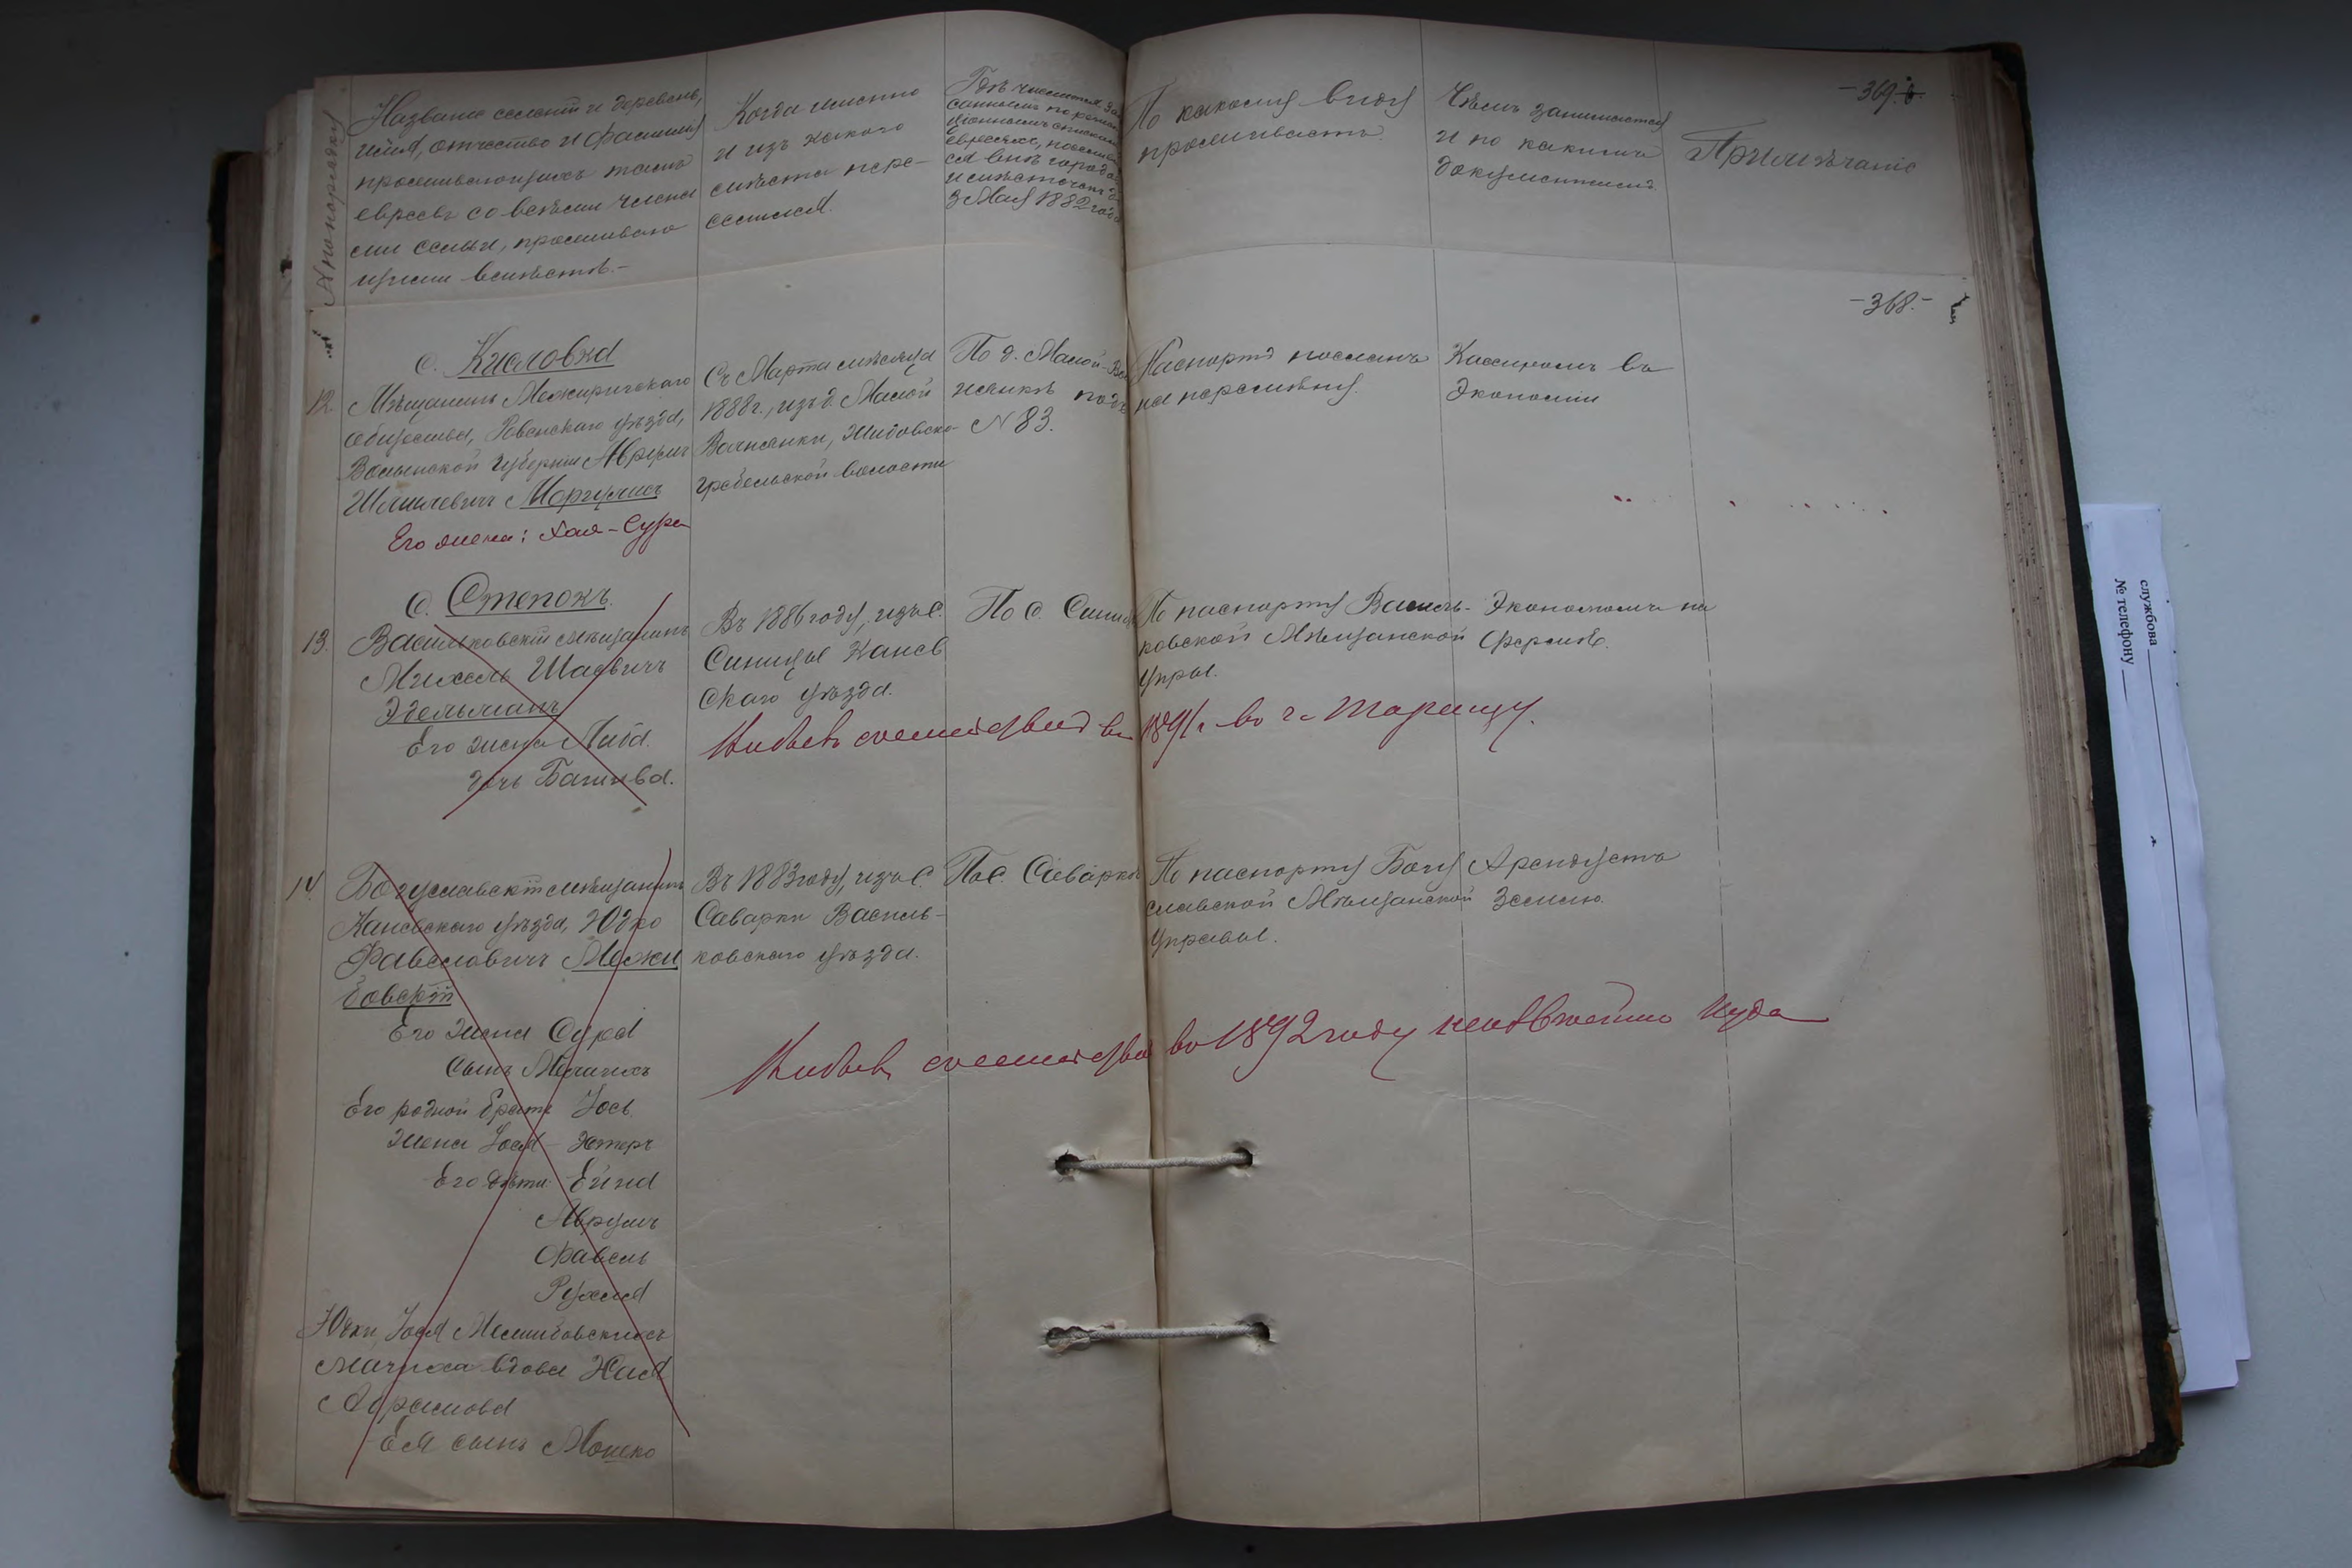 № по порядку
Названіе селеній и деревень,
имя, отчество и фамилія
проживающихъ тамъ
евреевъ со всѣми члена
ми семьи, проживаю
щими вмѣстѣ.-
Когда именно
и изъ какого
мѣста пере-
селился.
Гдѣ числится за
евреевъ, поселив
ся внѣ городовъ
и мѣстечекъ до
3 Мая 1882 года
По какому виду
проживаетъ.
Чѣмъ занимается
и по какимъ
документамъ.
Примѣчаніе
-369.-
-368.-
с. Кисловка
12.
Мѣщанинъ Межиричскаго
общества, Ровенскаго уѣзда,
Волынской губерніи Аврумъ
Шмилевичъ Моргулисъ
Его жена: Хая-Сура
Съ Марта мѣсяца
1888 г., изъ д. Малой
Вагнянки, Жидовско-
гребельской волости
По д. Малой
подъ
№ 83.
Паспортъ посланъ
на перемѣну.
Кассиромъ въ
Экономіи
с. Степокъ.
13.
Васильковскій мѣщанинъ
Михель Шаевичъ
Эдельманъ
Его жена Либа.
дочь Башева.
Въ 1886 году, изъ с.
Синицы Канев
скаго уѣзда.
По с. Синиц
По паспорту Василь-
ковской Мѣщанской
Упры.
Экономомъ на
фермѣ.
Выбылъ съ семействомъ въ 1891 г. въ г. Таращу.
14.
Богуславскій мѣщанинъ
Каневскаго уѣзда, Юдко
Фавеловичъ Межи
бовскій
Его жена Сура
Сынъ
Его родной братъ Іось.
Жена Іося - Эстеръ
Его дѣти: Ейна
Аврумъ
Фавель
Рухля
Юдки, Іося Межибовскихъ
мачиха вдова Хая
Абрамова
Ея сынъ Мошко
Въ 1883 году, изъ с.
Саварки Василь-
ковскаго уѣзда.
По с. Саварк
По паспорту Богу
славской Мѣщанской
Управы.
Арендуетъ
землю.
Выбылъ съ семействомъ въ 1892 году неизвѣстно куда
службова
№ телефону